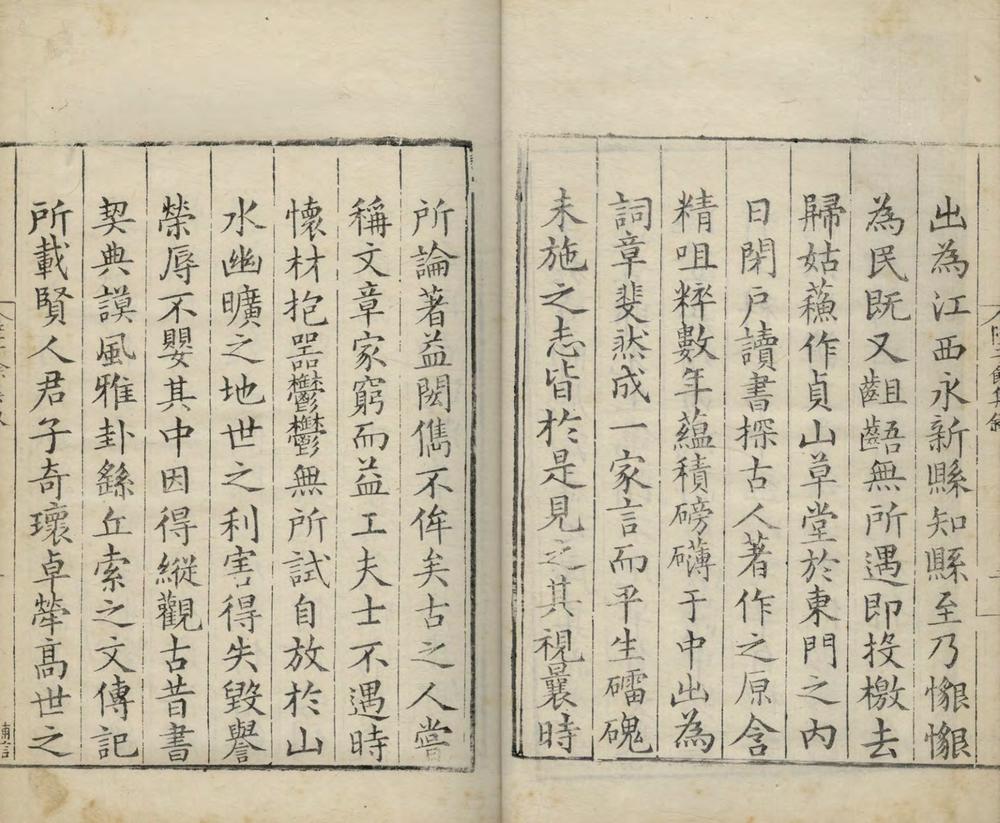 出為江西永新縣知縣至乃懇懇
為民既又齟齬無所遇即投檄去
歸姑蘓作貞山草堂於東門之內
日閉戶讀書探古人著作之原含
精咀粹數年蘊積磅礴于中出為
詞章斐然成一家言而平生礌磈
未施之志皆於是見之其視曩時
所論著益閎儁不侔矣古之人嘗
稱文章家窮而益工夫士不遇時
懷材抱器鬱鬱無所試自放於山
水幽曠之地世之利害得失毀譽
榮辱不嬰其中因得縱觀古昔書
契典謨風雅卦繇丘索之文傳記
所載賢人君子奇瓌卓犖高世之